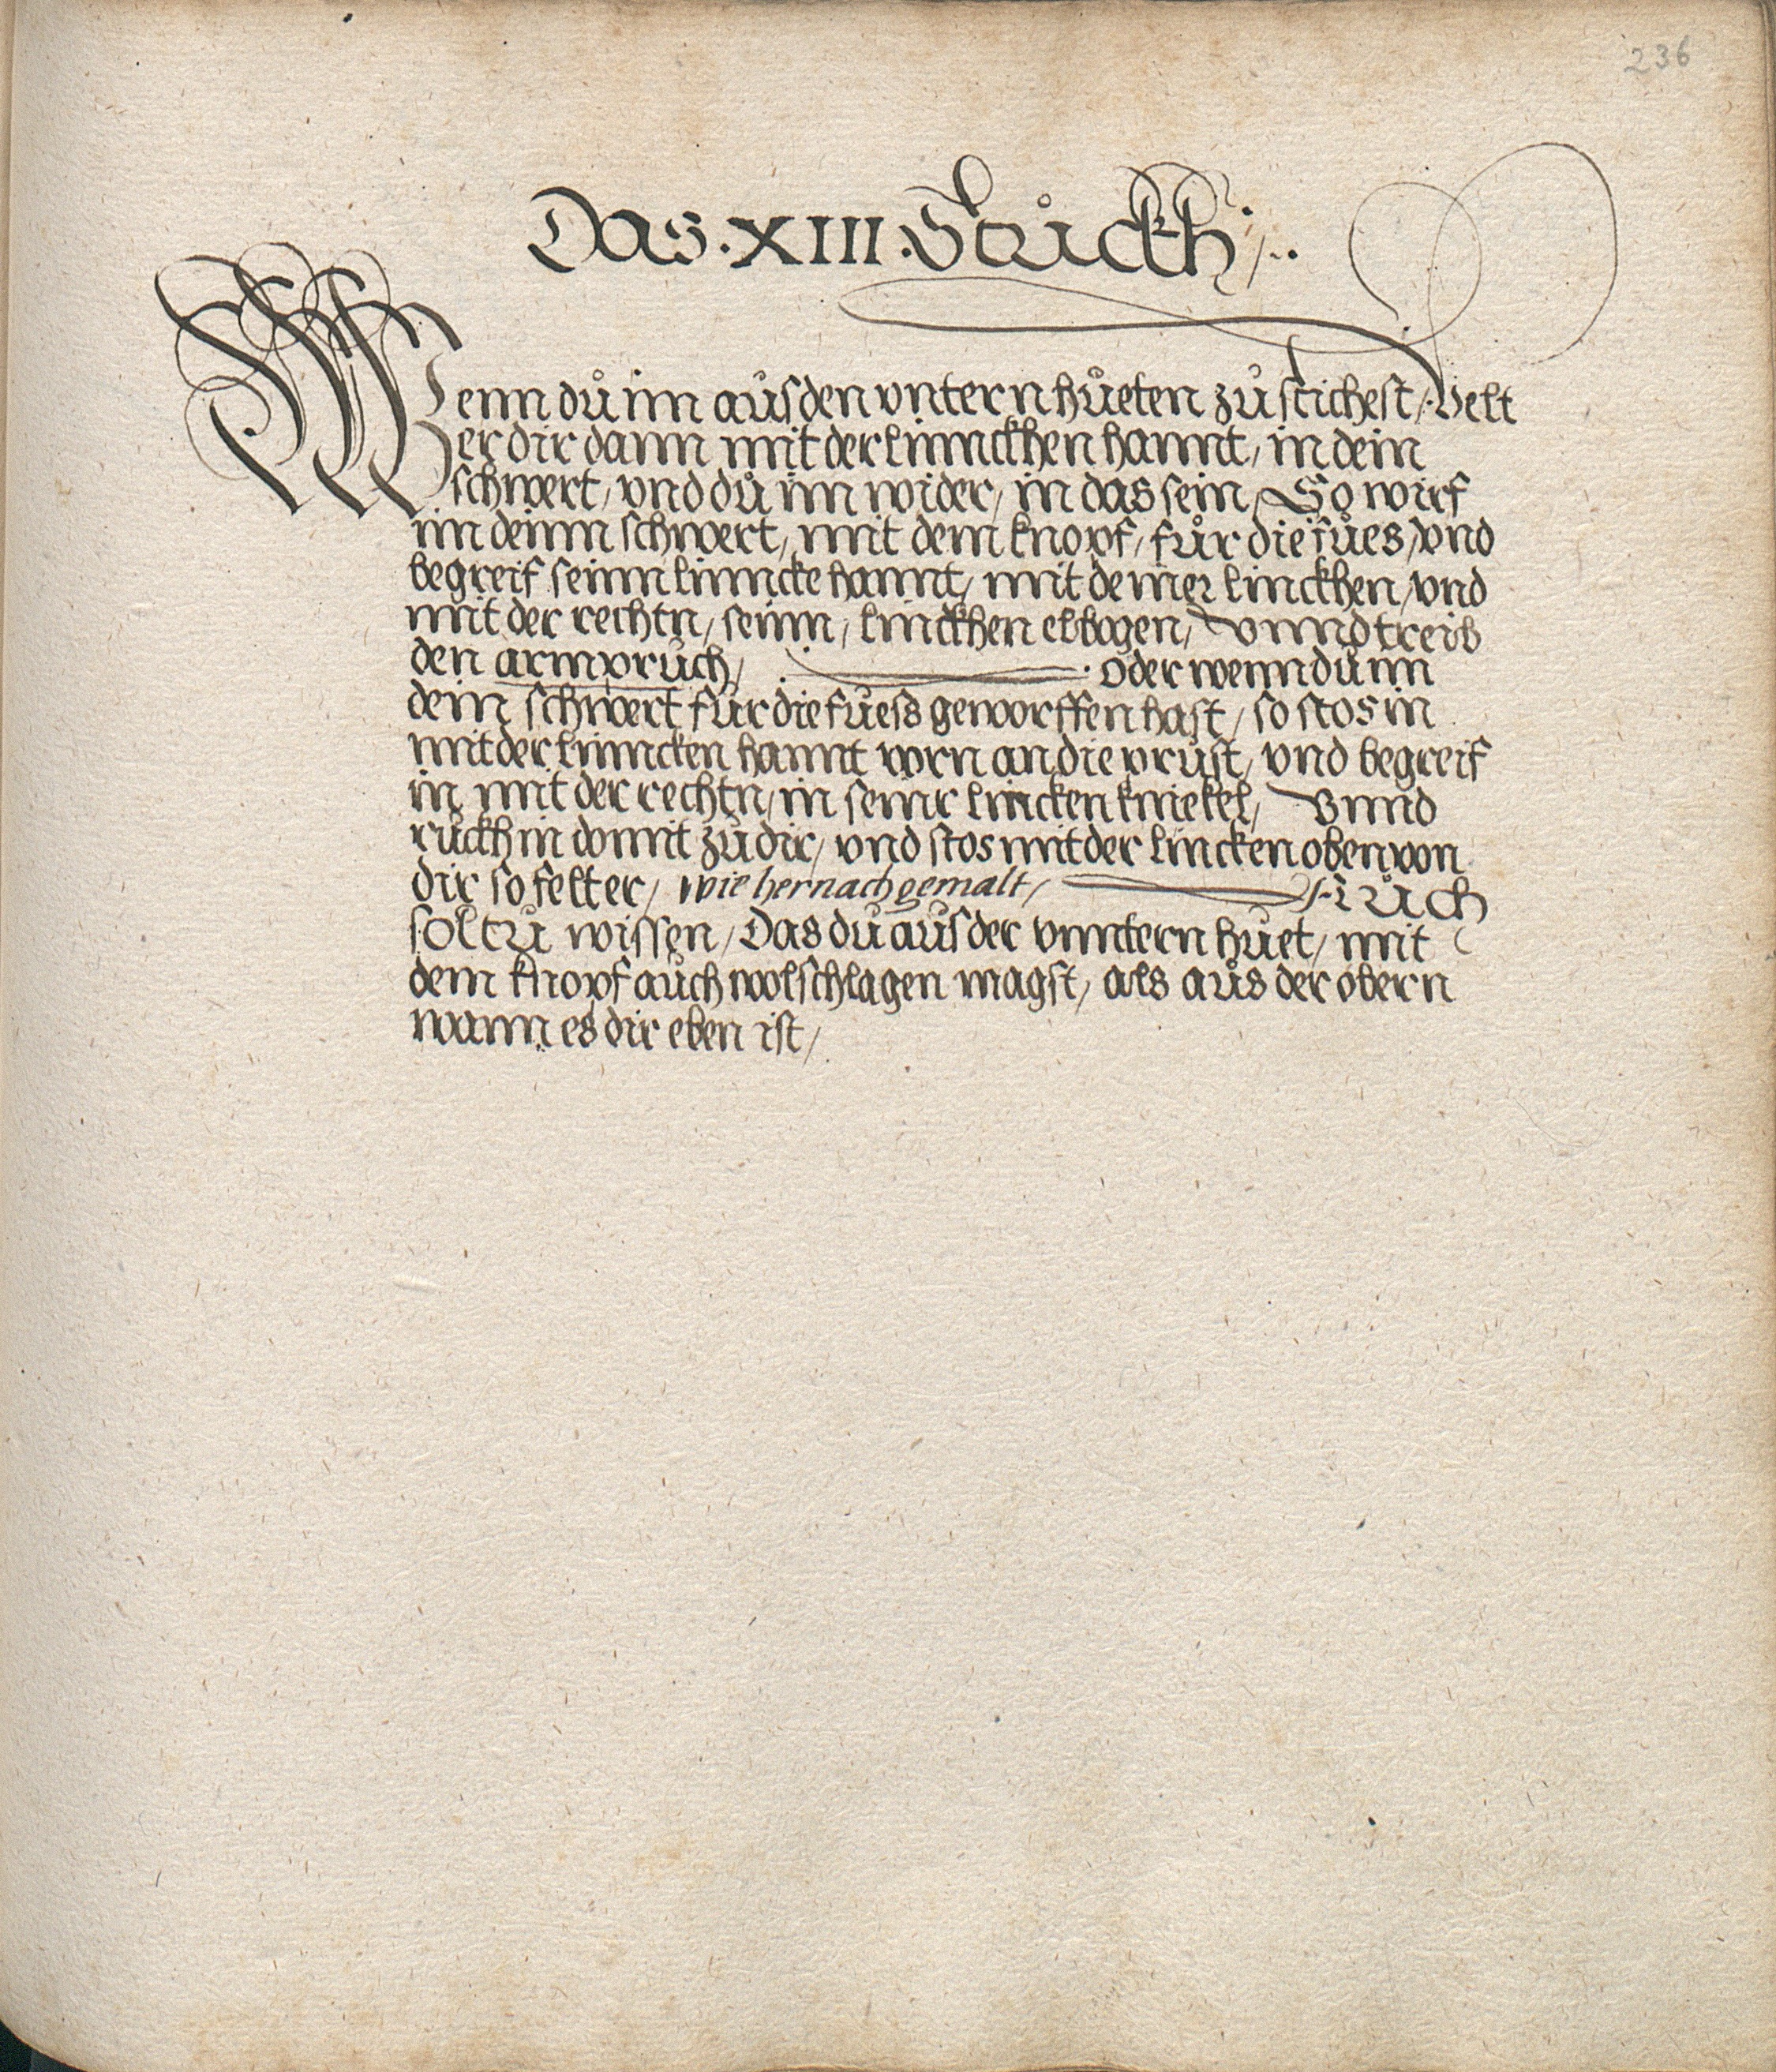 236
Das .XIII. Stückh /..
Wenn dů im aůs den vntern hůeten zů stichest /. Velt
er dir dann mit der linnckhen hannt / in dein
schwert / vnd dů im wider / in das sein / So wirf
im deinn schwert / mit dem knopf / für die fües / vnd
begreif seinn linncke hannt / mit deiner linckhen / vnd
mit der rechtn / seinn / linckhen elbogen / Vnnd treib
den armpruch / . oder wenn dů im
dein schwert für die füess geworffen hast / so stos in
mit der linncken hannt vorn an die prust / vnd begreif
in mit der rechtn / in seinr lincken kniekel / Vnnd
rückh in domit zů dir / vnd stos mit der lincken oben von
dir so felt er / wie hernach gemalt / Aůch
soltu wissen / Das dů aůs der vnntern hůet / mit
dem knopf aůch wolschlagen magst / als aůs der obern
wann es dir eben ist /